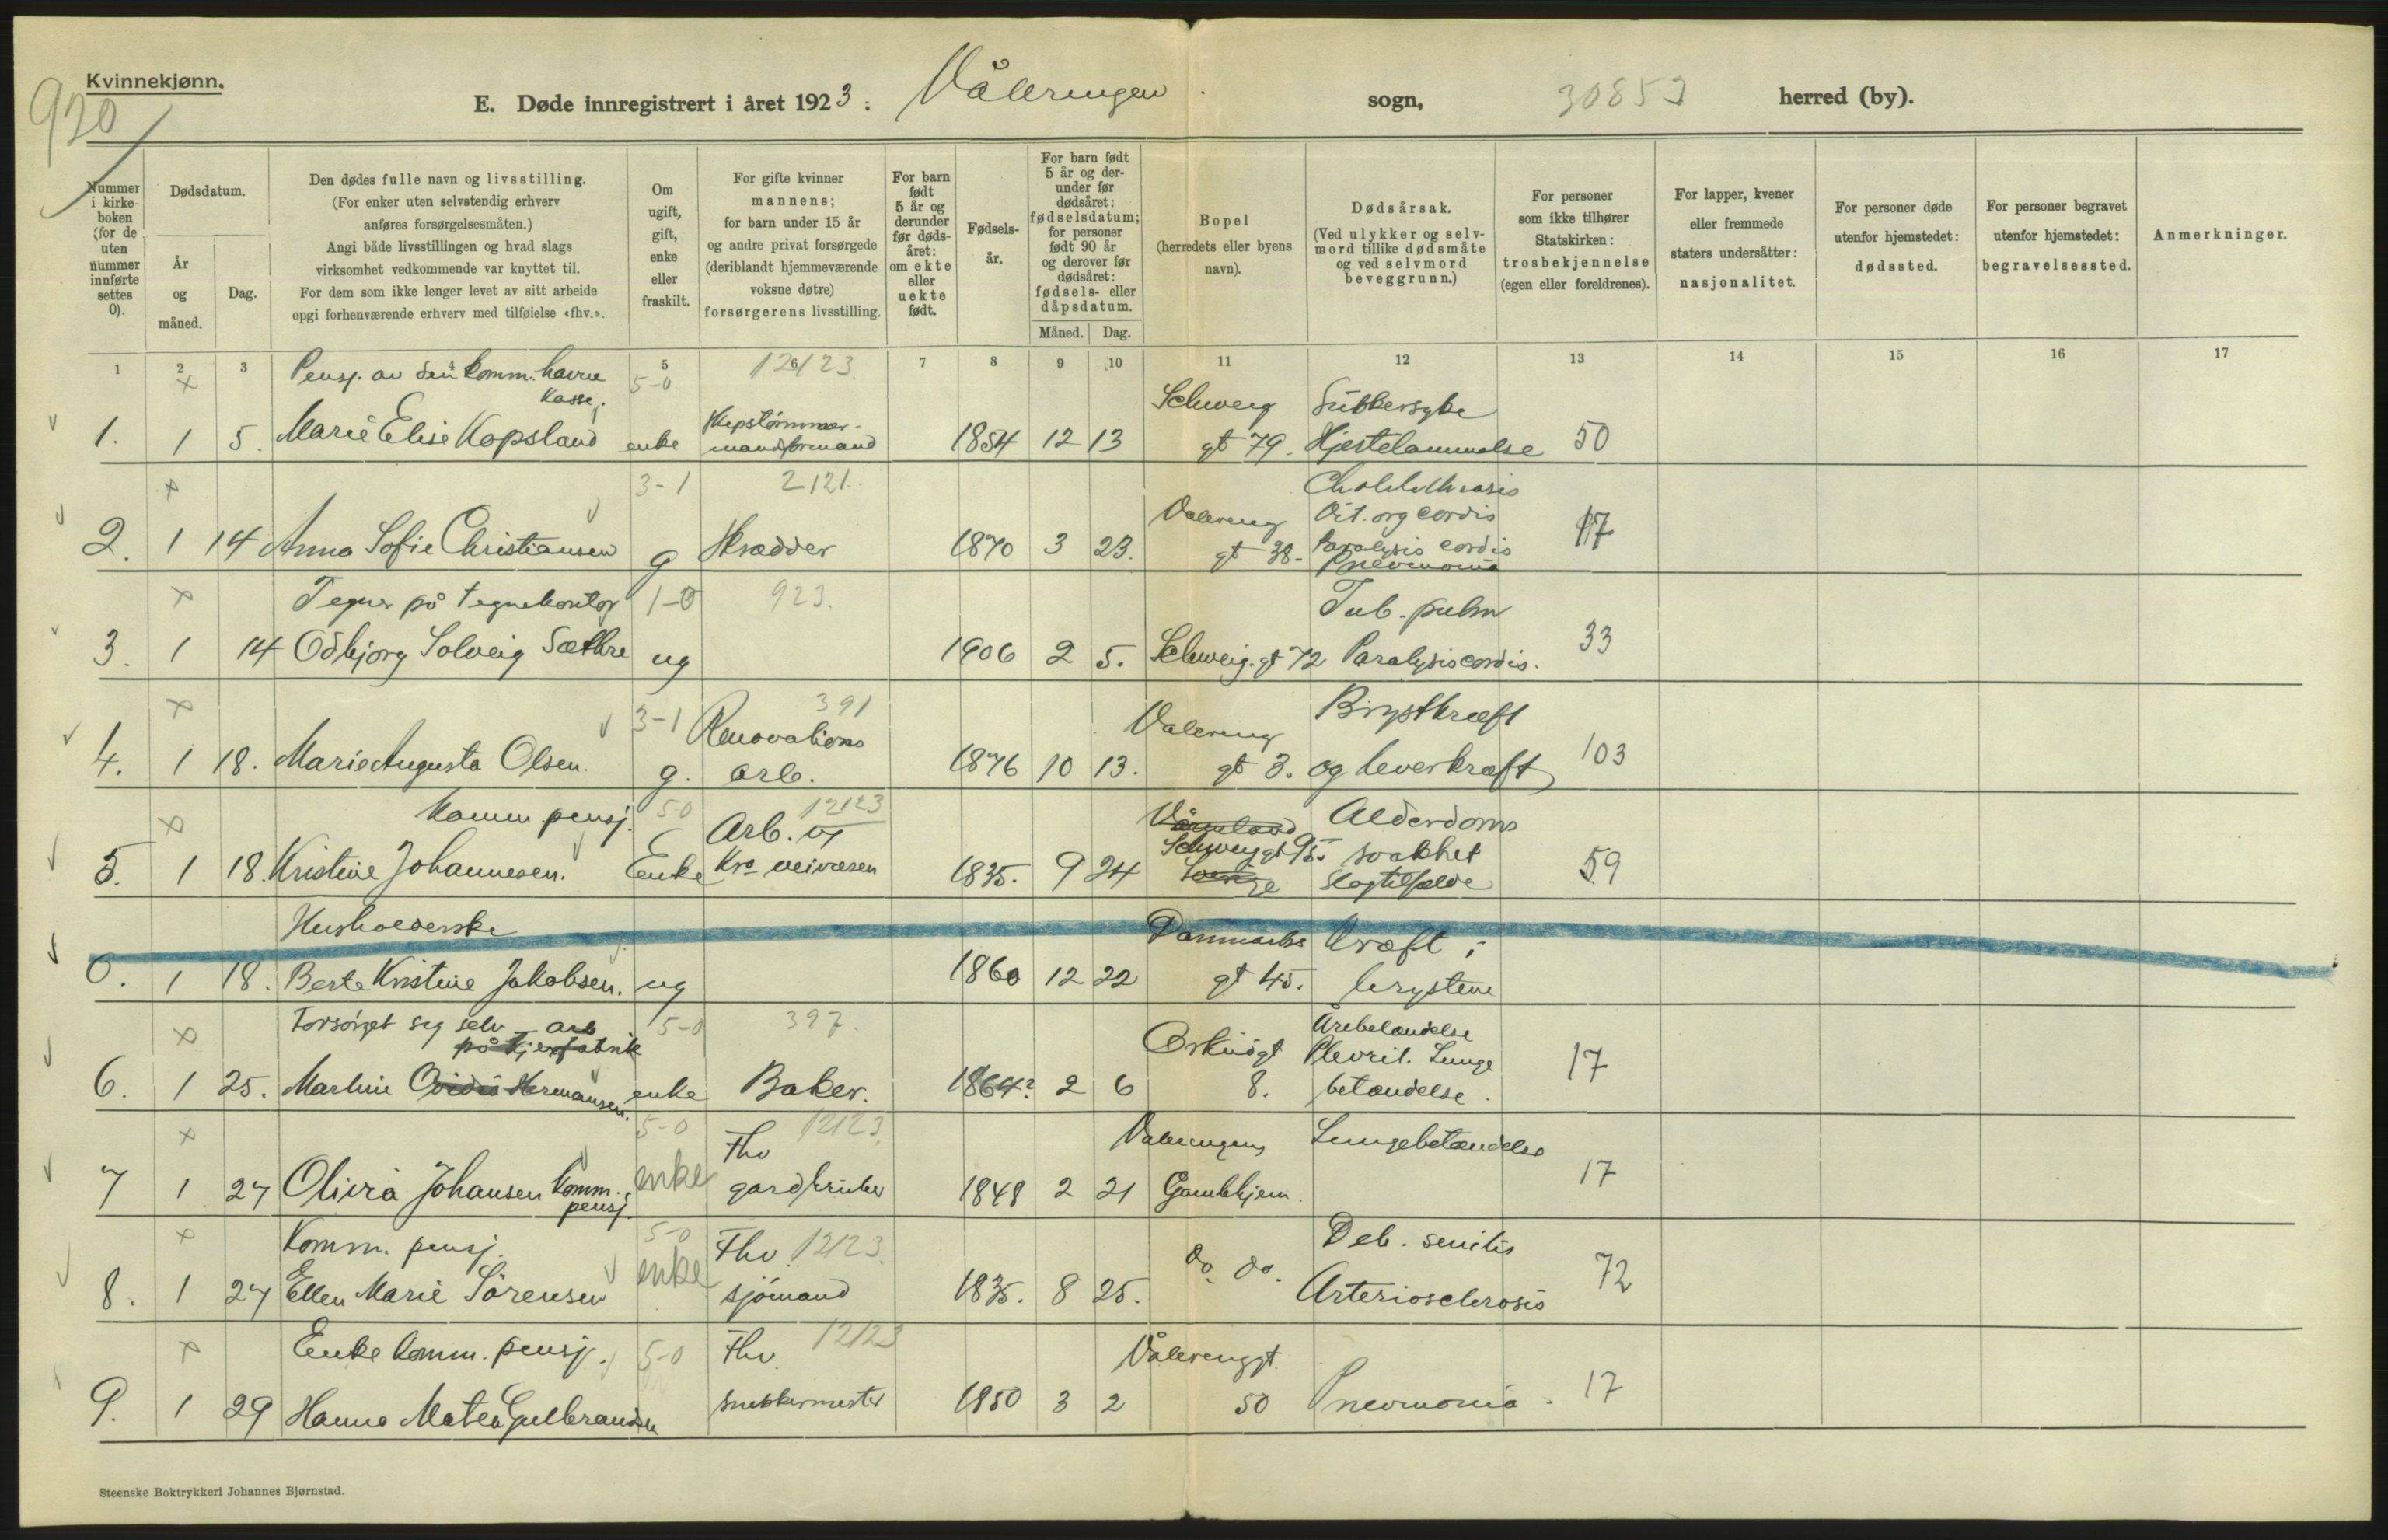 Kvinnekjønn.
920
E. Døde innregistrert i året 1923. Vålerengen sogn, 30853 herred (by).
Nummer i kirkeboken (for de uten nummer innførte settes 0).
Dødsdatum.
År og måned.
Dag.
Den dødes fulle navn og livsstilling.
(For enker uten selvstendig erhverv
anføres forsørgelsesmåten.)
Angi både livsstillingen og hvad slags
virksomhet vedkommende var knyttet til.
For dem som ikke lenger levet av sitt arbeide
opgi forhenværende erhverv med tilføielse «fhv.».
Om ugift, gift, enke eller fraskilt.
For gifte kvinner
mannens;
for barn under 15 år
og andre privat forsørgede
(deriblandt hjemmeværende
voksne døtre)
forsørgerens livsstilling.
For barn født 5 år og derunder før dødsåret: om ekte eller uekte født.
Fødselsår.
For barn født 5 år og derunder før dødsåret: fødselsdatum; for personer født 90 år og derover før dødsåret: fødsels- eller dåpsdatum.
Måned. Dag.
Bopel
(herredets eller byens
navn).
Dødsårsak.
(Ved ulykker og selv-
mord tillike dødsmåte
og ved selvmord
beveggrunn.)
For personer
som ikke tilhører
Statskirken:
trosbekjennelse
(egen eller foreldrenes).
For lapper, kvener
eller fremmede
staters undersåtter:
nasjonalitet.
For personer døde
utenfor hjemstedet:
dødssted.
For personer begravet
utenfor hjemstedet:
begravelsessted.
Anmerkninger.
1 2 3 4 5 6 7 8 9 10 11 12 13 14 15 16 17
Pensj. av den komm. havne 5-0 12123 Schweig Sukkersyke
kasse.
1. 1 5. Marie Elise Kopsland enke mandformand 1854 12 13 gt 79. Hjertelammelse 50
3-1 2121
Valereng Vit. org cordis
2. 1 14 Anna Sofie Christiansen g Skrædder 1870 3 23. gt 38. Paralysis cordis 17
Pneumonia
Tegner på tegnekontor 1-0 923. Tub. pulm
3. 1 14 Odbjørg Solveig Sæthre ug 1906 2 5. Schweig. gt 72 Paralysis cordis. 33
3-1 Renovations 391 Valereng Brystkræft
4. 1 18. Marie Augusta Olsen. g. arb. 1876 10 13. gt 3. og leverkræft 103
Komm. pensj. 5-0 Arb. v 12123 Värmland Alderdoms
Schweiggt 95. svakhet
5. 1 18. Kristine Johannesen. Enke Kra veivæsen 1835. 9 24 Sverige Slagtilfælde 59
Husholderske Danmarks Kræft i
0. 1 18. Berte Kristine Jakobsen. ug 1860 12 22 gt 45. brystene
Forsørget sig selv - arb 5-0 397. Årebetændelse
på Tjærfabrik Ørknigt Plevrit. Lunge
6. 1 25. Martine Hermansen. enke Baker. 1864? 2 6 8. betændelse. 17
5-0 Fhv 12123 Valerengens Lungebetændelse
7 1 27 Olivia Johansen Komm. pensj. enke gardbruker 1848 2 21 Gamlehjem. 17
Komm. pensj. 5-0 Fhv. 12123 Deb. senilis
8. 1 27 Ellen Marie Sørensen enke sjømand 1835. 8 25. do. do. Arteriosclerosis 72
Enke Komm. pensj. 5-0 Fhv. 12123 Vålerenggt
9. 1 29 Hanna Matea Gulbrandsen snekkermester 1850 3 2 50 Pneumonia. 17
Steenske Boktrykkeri Johannes Bjørnstad.